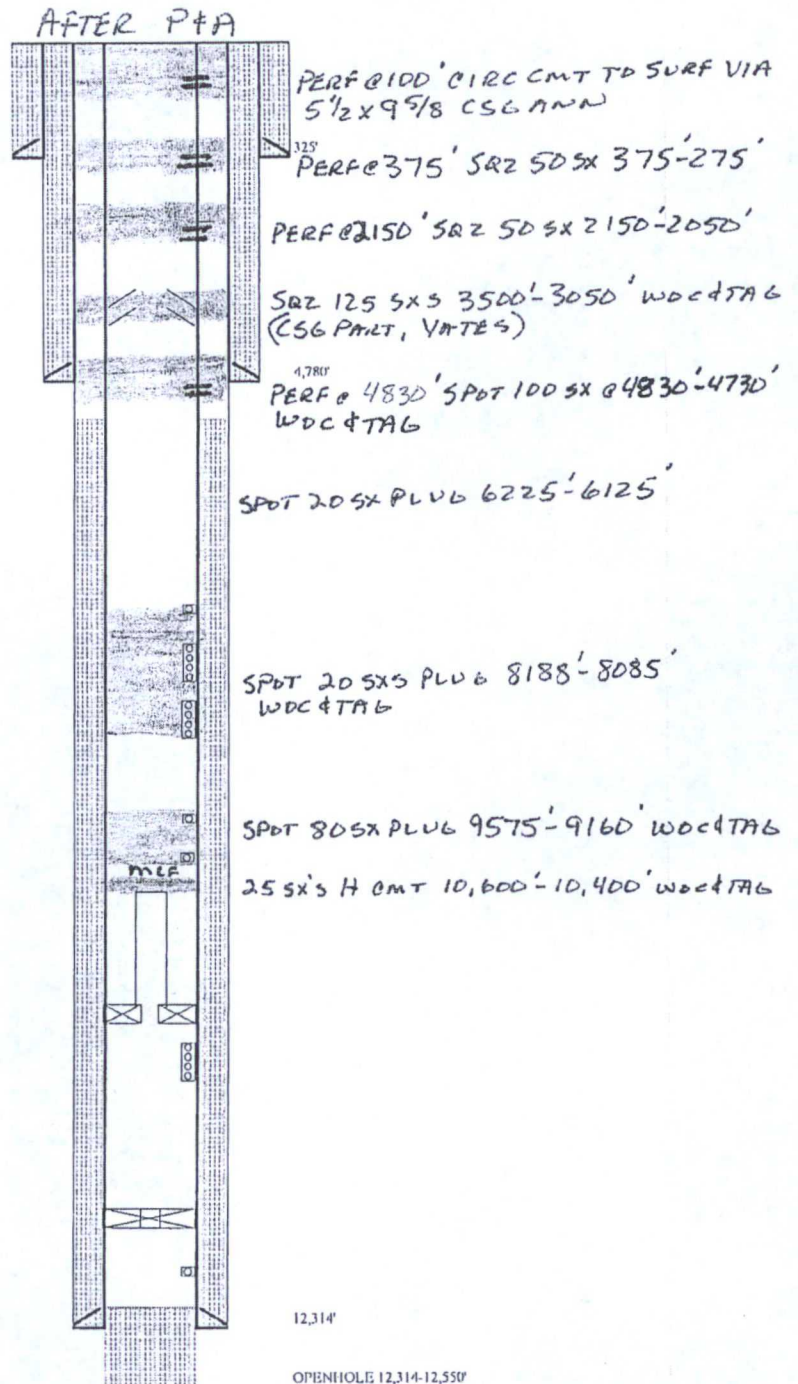 AFTER P&A
PERF @ 100' CIRC CMT TO SURF VIA
5 1/2 X 9 5/8 CSG ANN
325'
PERF @ 375' SQZ 50 SX 375'-275'
PERF @ 2150' SQZ 50 SX 2150'-2050'
SQZ 125 SXS 3500'-3050' WOC & TAG
(CSG PART, YATES)
4,780'
PERF @ 4830' SPOT 100 SX @ 4830'-4730'
WOC & TAG
SPOT 20 SX PLUG 6225'-6125'
SPOT 20 SXS PLUG 8188'-8085'
WOC & TAG
SPOT 80 SX PLUG 9575'-9160' WOC & TAG
MLF
25 SX'S H CMT 10,600'-10,400' WOC & TAG
12,314'
OPENHOLE 12,314-12,550'